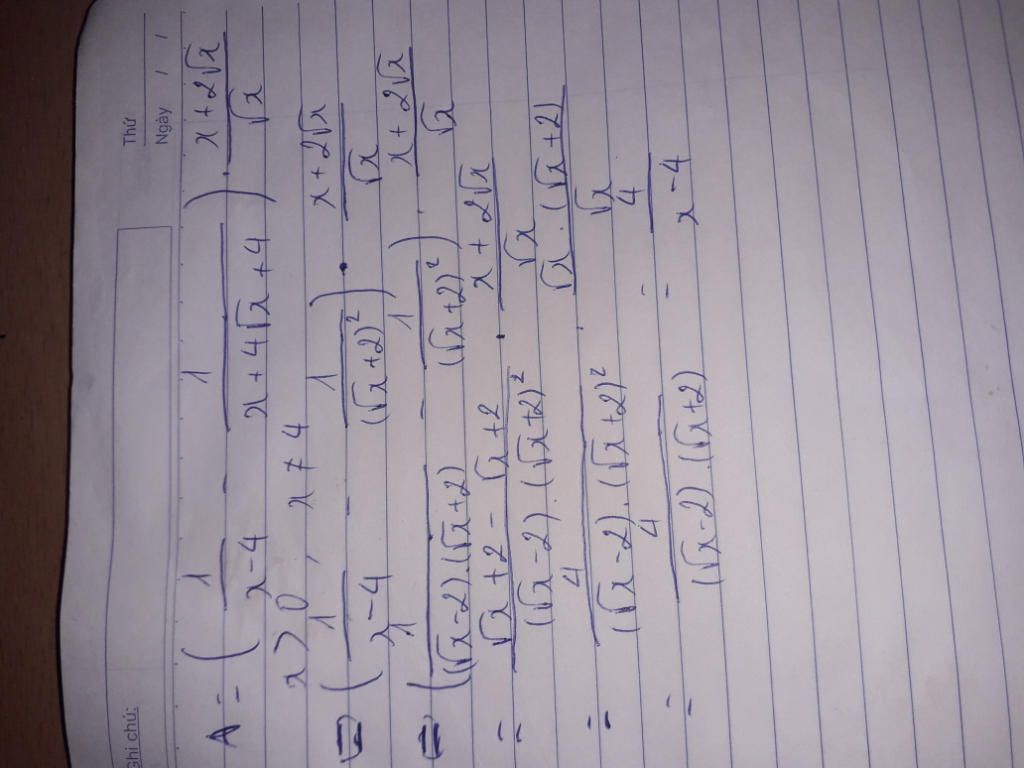 Ghi chú:
Thứ
Ngày / /
A = ( 1/(x-4) - 1/(x+4√x+4) ) . (x+2√x)/√x
x > 0, x ≠ 4
= ( 1/(x-4) - 1/(√x+2)² ) . (x+2√x)/√x
= ( 1/((√x-2).(√x+2)) - 1/(√x+2)² ) . (x+2√x)/√x
= (√x+2 - √x+2)/((√x-2).(√x+2)²) . (x+2√x)/√x
= 4/((√x-2).(√x+2)²) . (√x.(√x+2))/√x
= 4/((√x-2).(√x+2)) = 4/(x-4)